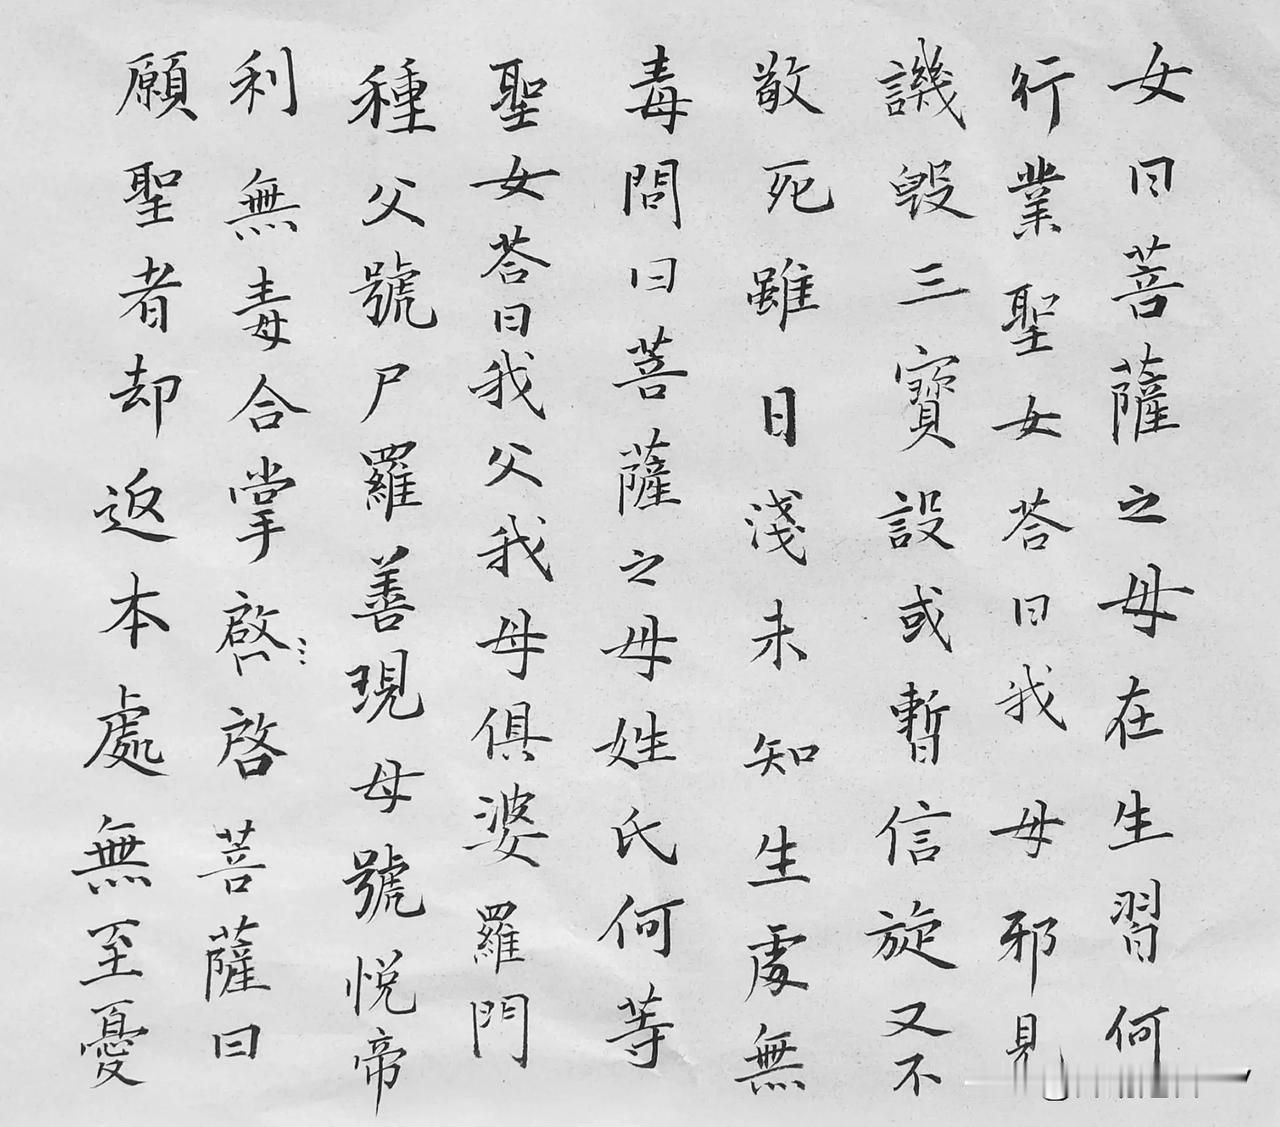 女曰菩薩之母在生習何
行業聖女荅曰我母邪見
譏毀三寶設或暫信旋又不
敬死雖日淺未知生處無
毒問曰菩薩之母姓氏何等
聖女荅曰我父我母俱婆羅門
種父號尸羅善現母號悅帝
利無毒合掌啟啓菩薩曰
願聖者却返本處無至憂